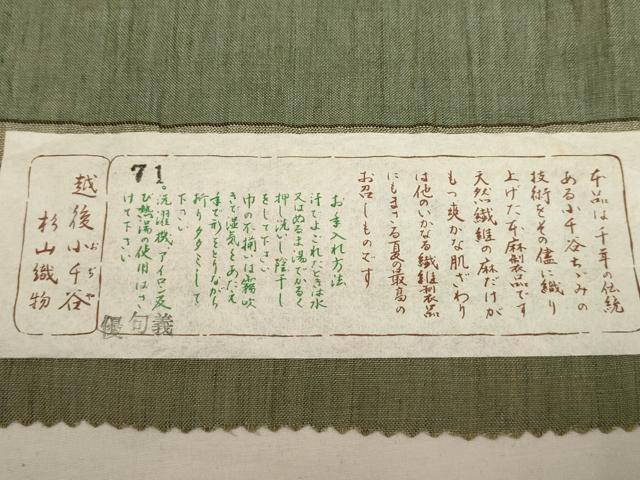 本品は千年の伝統
ある小千谷ちゞみの
技術をその儘に織り
上げた本麻製品です
天然繊維の麻だけが
もつ爽かな肌ざわり
は他のいかなる繊維製品
にもまさる夏の最高の
お召しものです
お手入れ方法
汗でよごれたときは水
又はぬるま湯でかるく
押し洗いし陰干し
をして下さい
巾の不揃いは霧吹
きで湿気をあたえ
手で形をとりながら
折りタタミして
下さい
。洗濯機、アイロン及
び熱湯の使用はさ
けて下さい
71
優 句 義
越後小千谷
おぢや
杉山織物